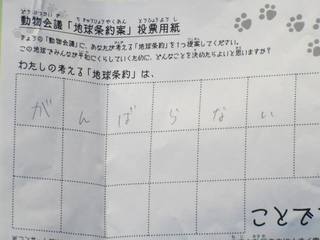 動物会議「地球条約案」投票用紙
きょうの「動物会議」に、あなたが考える「地球条約」を1つ提案してください。
この地球でみんなが平和にくらしていくために、どんなことを決めたらよいと思いますか?
わたしの考える「地球条約」は、
がんばらない
こと